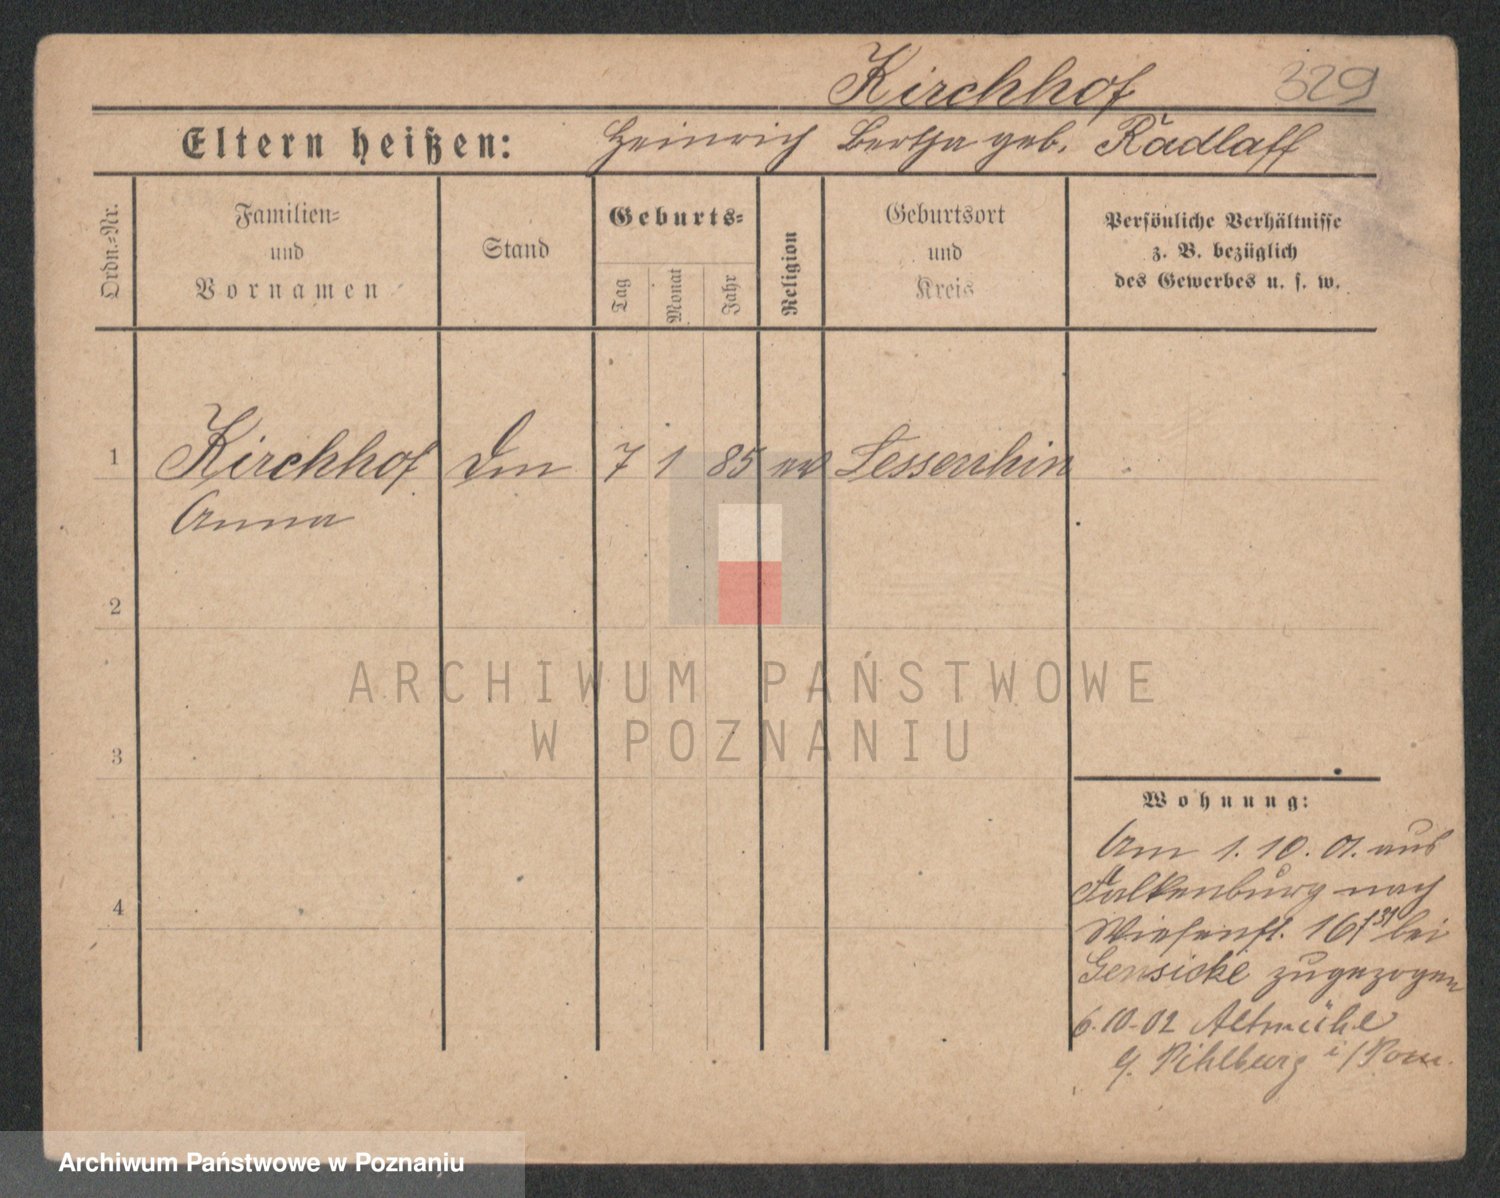 Kirchhof 329
Eltern heißen: Heinrich Bertha geb. Radlaff
Ordn.=Nr.
Familien=
und
Vornamen
Stand
Geburts=
Tag
Monat
Jahr
Religion
Geburtsort
und
Kreis
Persönliche Verhältnisse
z. B. bezüglich
des Gewerbes u. s. w.
1 Kirchhof 7 1 85 ev
Anna
2
3
4
ARCHIWUM PAŃSTWOWE
W POZNANIU
Wohnung:
Am 1. 10. 01. aus
Falkenburg nach
Wiesenst. 16 bei
Gensicke zugezogen
6. 10-02 Altmühl
i/Pom.
Archiwum Państwowe w Poznaniu